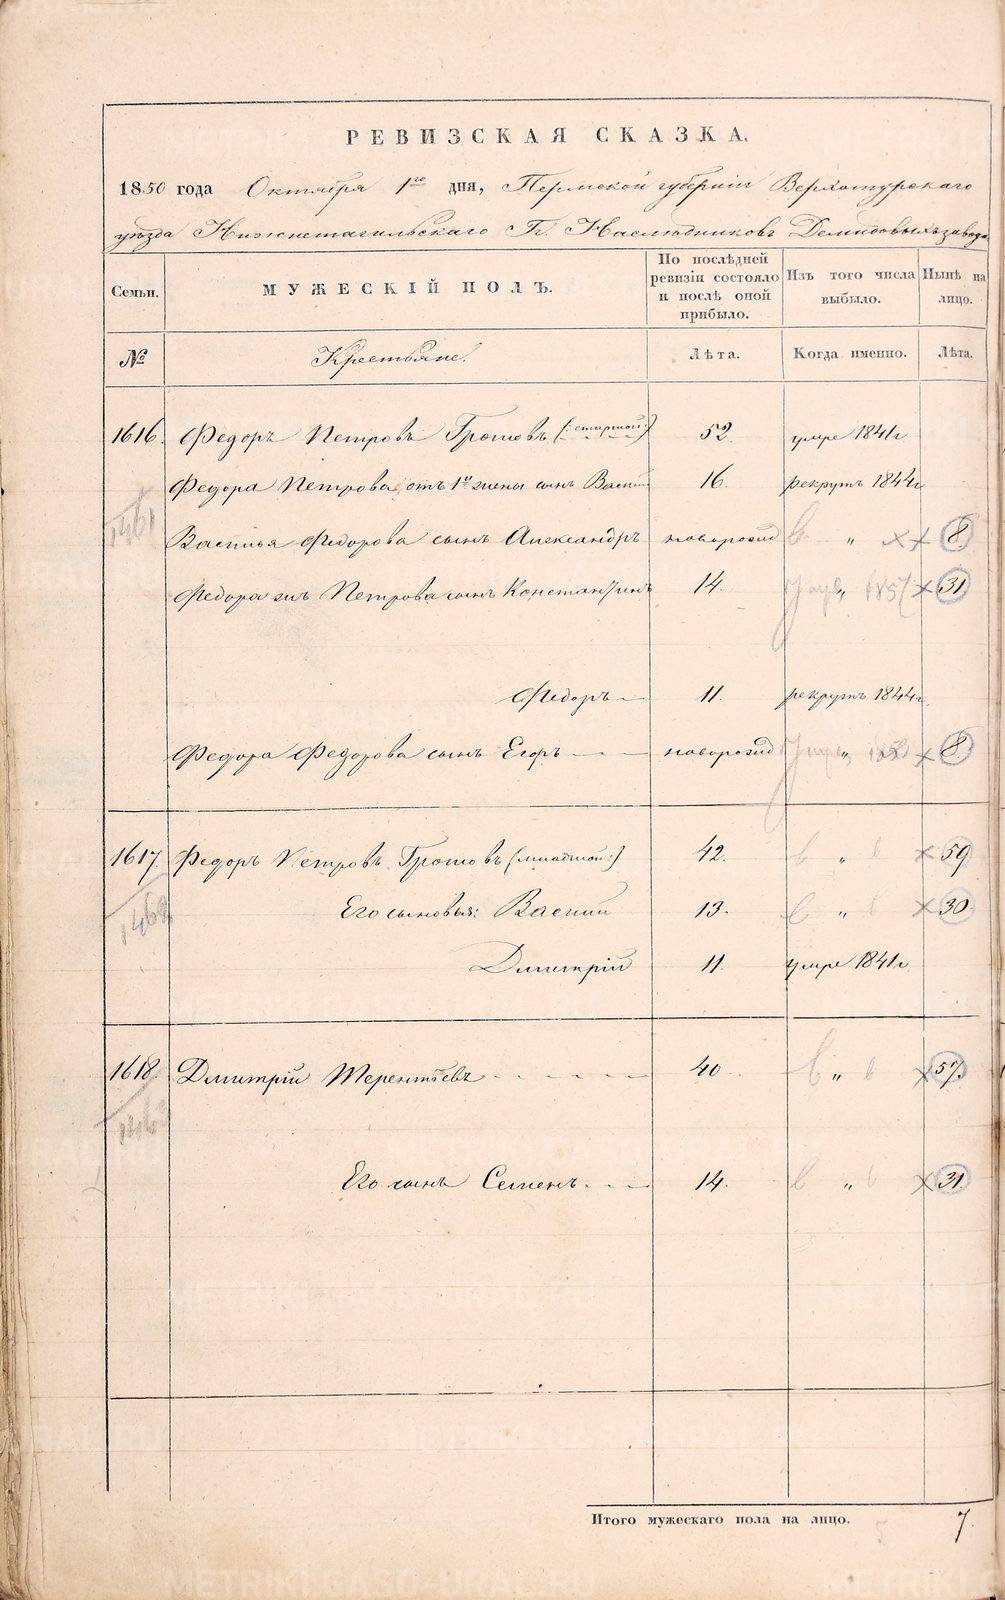 РЕВИЗСКАЯ СКАЗКА.
1850 года Октября 1го дня, Пермской губернiи Верхотурскаго
уѣзда Нижнетагильскаго Гг. Наслѣдниковъ Демидовыхъ завода
Семьи. МУЖЕСКІЙ ПОЛЪ. По послѣдней ревизіи состояло и послѣ оной прибыло. Изъ того числа выбыло. Нынѣ на лицо.
№ Крестьяне. Лѣта. Когда именно. Лѣта.
1616. Федоръ Петровъ Громовъ (:старшой:) 52. умре 1841г.
Федора Петрова отъ 1й жены сынъ Василiй 16. рекрутъ 1844г.
1461
Василья Федорова сынъ Александръ новорожд „ 8.
Федора жъ Петрова сынъ Константинъ 14. „ 1857 31
Федоръ 11. рекрутъ 1844г.
Федора Федорова сынъ Егоръ новорожд „ 8.
1617. Федоръ Петровъ Громовъ (младшой:) 42. „ 59
1462
Его сыновья: Василiй 13. „ 30
Дмитрiй 11. умре 1841г.
1618. Дмитрiй Терентьевъ 40. „ 57.
Его сынъ Семенъ 14. „ 31.
Итого мужескаго пола на лицо. 7.
METRIKI.GASO-URAL.RU